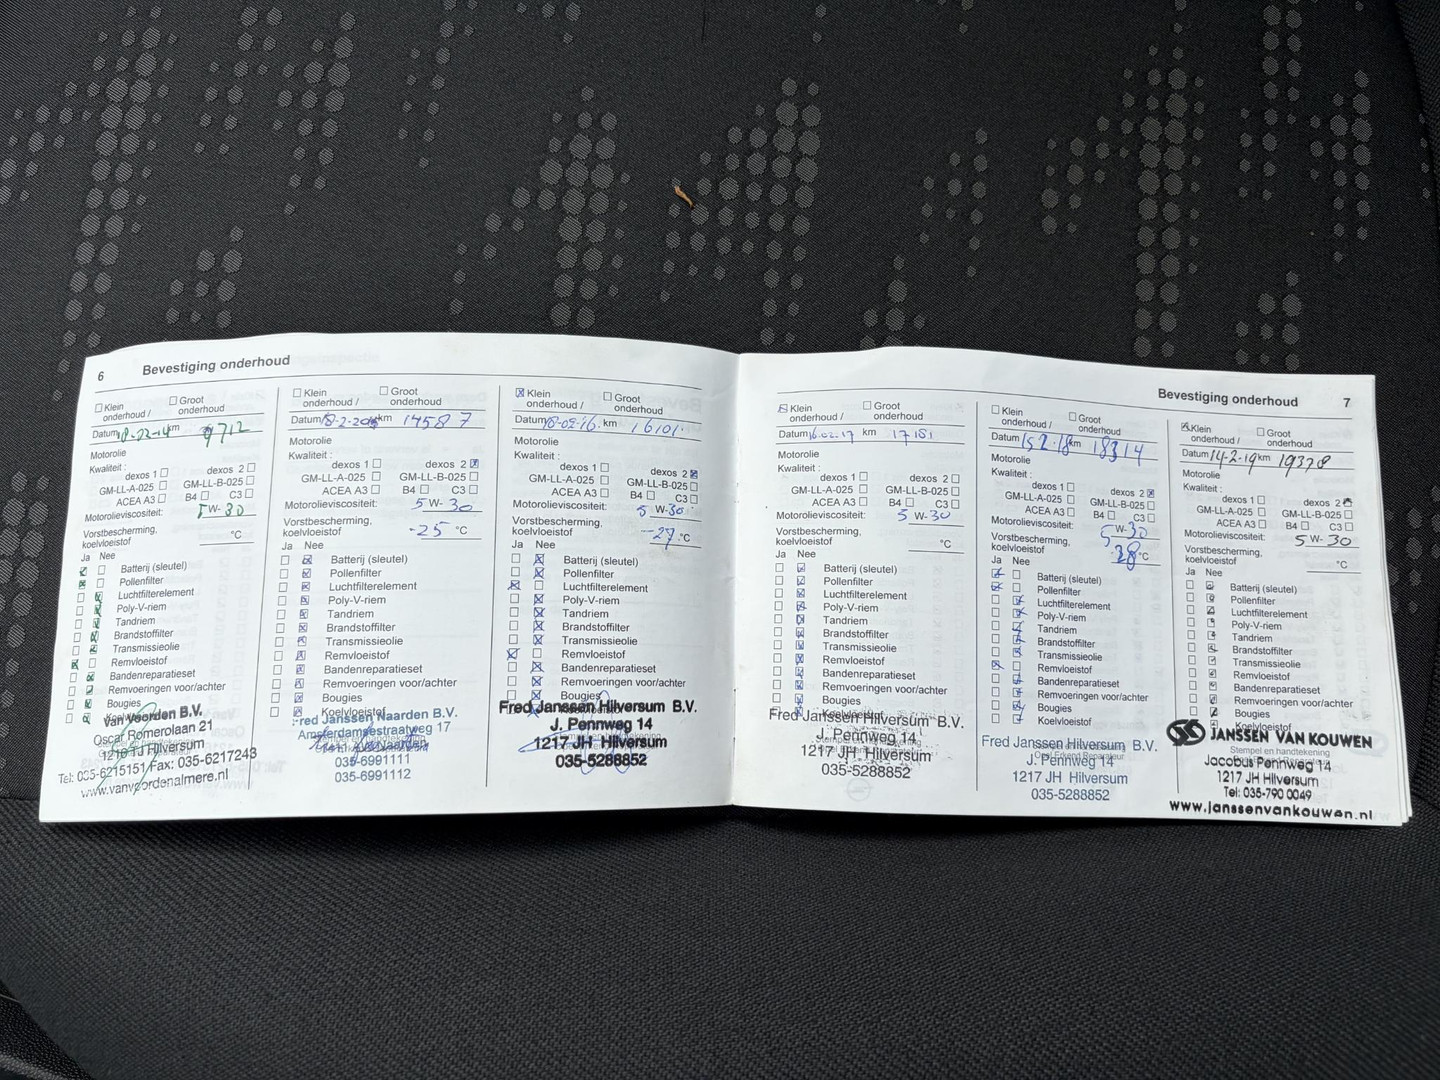 6 Bevestiging onderhoud
Klein onderhoud / Groot onderhoud
Datum 18-02-14 km 9712
Motorolie
Kwaliteit :
dexos 1 dexos 2
GM-LL-A-025 GM-LL-B-025
ACEA A3 B4 C3
Motorolieviscositeit: 5 W- 30
Vorstbescherming,
koelvloeistof °C
Ja Nee
Batterij (sleutel)
Pollenfilter
Luchtfilterelement
Poly-V-riem
Tandriem
Brandstoffilter
Transmissieolie
Remvloeistof
Bandenreparatieset
Remvoeringen voor/achter
Bougies
Koelvloeistof
Van Voorden B.V.
Oscar Romerolaan 21
Hilversum
Tel: 035-6215151 Fax: 035-6217243
www.vanvoordenalmere.nl
Klein onderhoud / Groot onderhoud
Datum km 14587
Motorolie
Kwaliteit :
dexos 1 dexos 2
GM-LL-A-025 GM-LL-B-025
ACEA A3 B4 C3
Motorolieviscositeit: 5 W- 30
Vorstbescherming,
koelvloeistof -25 °C
Ja Nee
Batterij (sleutel)
Pollenfilter
Luchtfilterelement
Poly-V-riem
Tandriem
Brandstoffilter
Transmissieolie
Remvloeistof
Bandenreparatieset
Remvoeringen voor/achter
Bougies
Koelvloeistof
Fred Janssen Naarden B.V.
Amsterdamsestraatweg 17
Naarden
035-6991111
035-6991112
Klein onderhoud / Groot onderhoud
Datum 18-02-16 km 16101
Motorolie
Kwaliteit :
dexos 1 dexos 2
GM-LL-A-025 GM-LL-B-025
ACEA A3 B4 C3
Motorolieviscositeit: 5 W- 30
Vorstbescherming,
koelvloeistof -27 °C
Ja Nee
Batterij (sleutel)
Pollenfilter
Luchtfilterelement
Poly-V-riem
Tandriem
Brandstoffilter
Transmissieolie
Remvloeistof
Bandenreparatieset
Remvoeringen voor/achter
Bougies
Fred Janssen Hilversum B.V.
J. Pennweg 14
1217 JH Hilversum
035-5288852
Bevestiging onderhoud 7
Klein onderhoud / Groot onderhoud
Datum 16-02-17 km 17181
Motorolie
Kwaliteit :
dexos 1 dexos 2
GM-LL-A-025 GM-LL-B-025
ACEA A3 B4 C3
Motorolieviscositeit: 5 W- 30
Vorstbescherming,
koelvloeistof °C
Ja Nee
Batterij (sleutel)
Pollenfilter
Luchtfilterelement
Poly-V-riem
Tandriem
Brandstoffilter
Transmissieolie
Remvloeistof
Bandenreparatieset
Remvoeringen voor/achter
Bougies
Koelvloeistof
Fred Janssen Hilversum B.V.
J. Pennweg 14
1217 JH Hilversum
035-5288852
Klein onderhoud / Groot onderhoud
Datum 15-2-18 km 18314
Motorolie
Kwaliteit :
dexos 1 dexos 2
GM-LL-A-025 GM-LL-B-025
ACEA A3 B4 C3
Motorolieviscositeit: 5 W- 30
Vorstbescherming,
koelvloeistof -28 °C
Ja Nee
Batterij (sleutel)
Pollenfilter
Luchtfilterelement
Poly-V-riem
Tandriem
Brandstoffilter
Transmissieolie
Remvloeistof
Bandenreparatieset
Remvoeringen voor/achter
Bougies
Koelvloeistof
Fred Janssen Hilversum B.V.
J. Pennweg 14
1217 JH Hilversum
035-5288852
Klein onderhoud / Groot onderhoud
Datum 14-2-19 km 19378
Motorolie
Kwaliteit :
dexos 1 dexos 2
GM-LL-A-025 GM-LL-B-025
ACEA A3 B4 C3
Motorolieviscositeit: 5 W- 30
Vorstbescherming,
koelvloeistof °C
Ja Nee
Batterij (sleutel)
Pollenfilter
Luchtfilterelement
Poly-V-riem
Tandriem
Brandstoffilter
Transmissieolie
Remvloeistof
Bandenreparatieset
Remvoeringen voor/achter
Bougies
Koelvloeistof
JANSSEN VAN KOUWEN
Stempel en handtekening
Jacobus Pennweg 14
1217 JH Hilversum
Tel: 035-790 0049
www.janssenvankouwen.nl